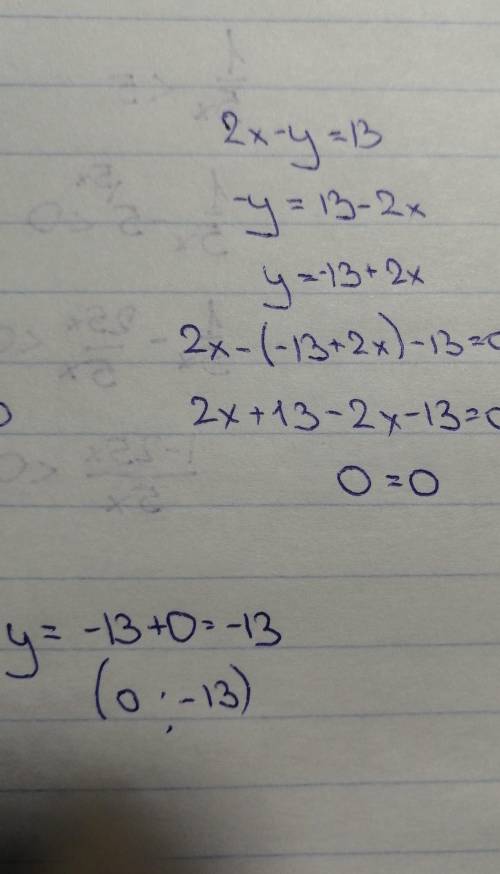 2x-y=13
-y=13-2x
y=-13+2x
2x-(-13+2x)-13=0
2x+13-2x-13=0
0=0
y=-13+0=-13
(0;-13)